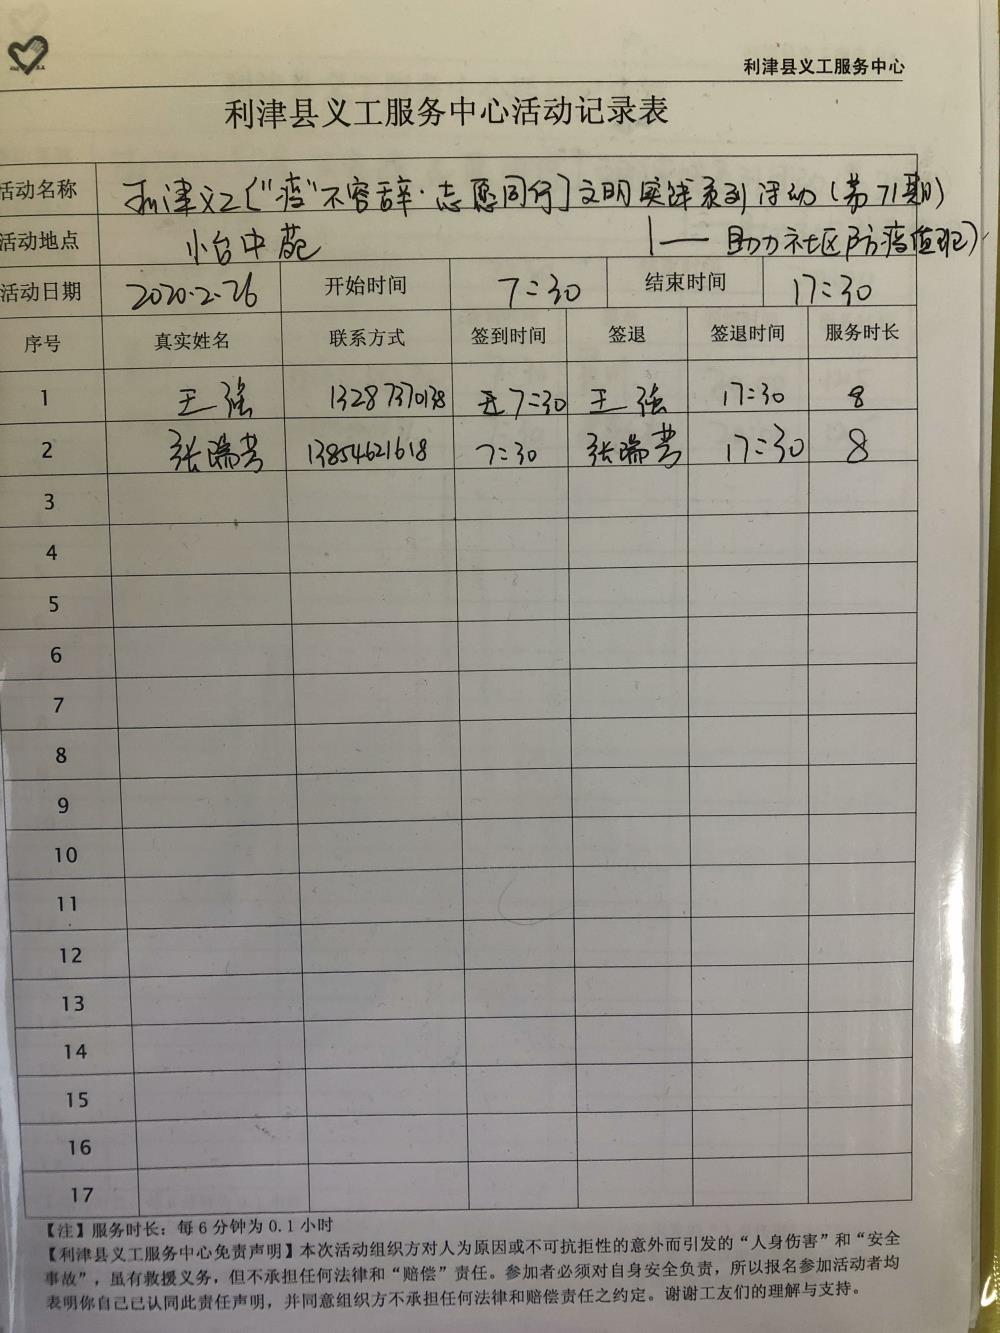 利津县义工服务中心
利津县义工服务中心活动记录表
活动名称 利津义工["疫"不容辞·志愿同行]文明实践系列活动(第71期)
活动地点 怡台中苑 (——助力社区防疫值班)
活动日期 2020.2.26 开始时间 7:30 结束时间 17:30
序号 真实姓名 联系方式 签到时间 签退 签退时间 服务时长
1 王强 13287370138 7:30 王强 17:30 8
2 张瑞芳 13854621618 7:30 张瑞芳 17:30 8
3
4
5
6
7
8
9
10
11
12
13
14
15
16
17
【注】服务时长：每6分钟为0.1小时
【利津县义工服务中心免责声明】本次活动组织方对人为原因或不可抗拒性的意外而引发的“人身伤害”和“安全
事故”，虽有救援义务，但不承担任何法律和“赔偿”责任。参加者必须对自身安全负责，所以报名参加活动者均
表明你自己已认同此责任声明，并同意组织方不承担任何法律和赔偿责任之约定。谢谢工友们的理解与支持。